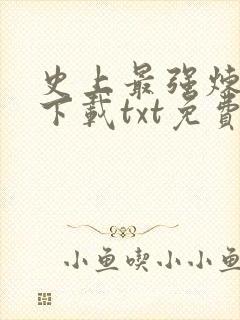 史上最强炼
下載txt免費
小鱼喫小小鱼